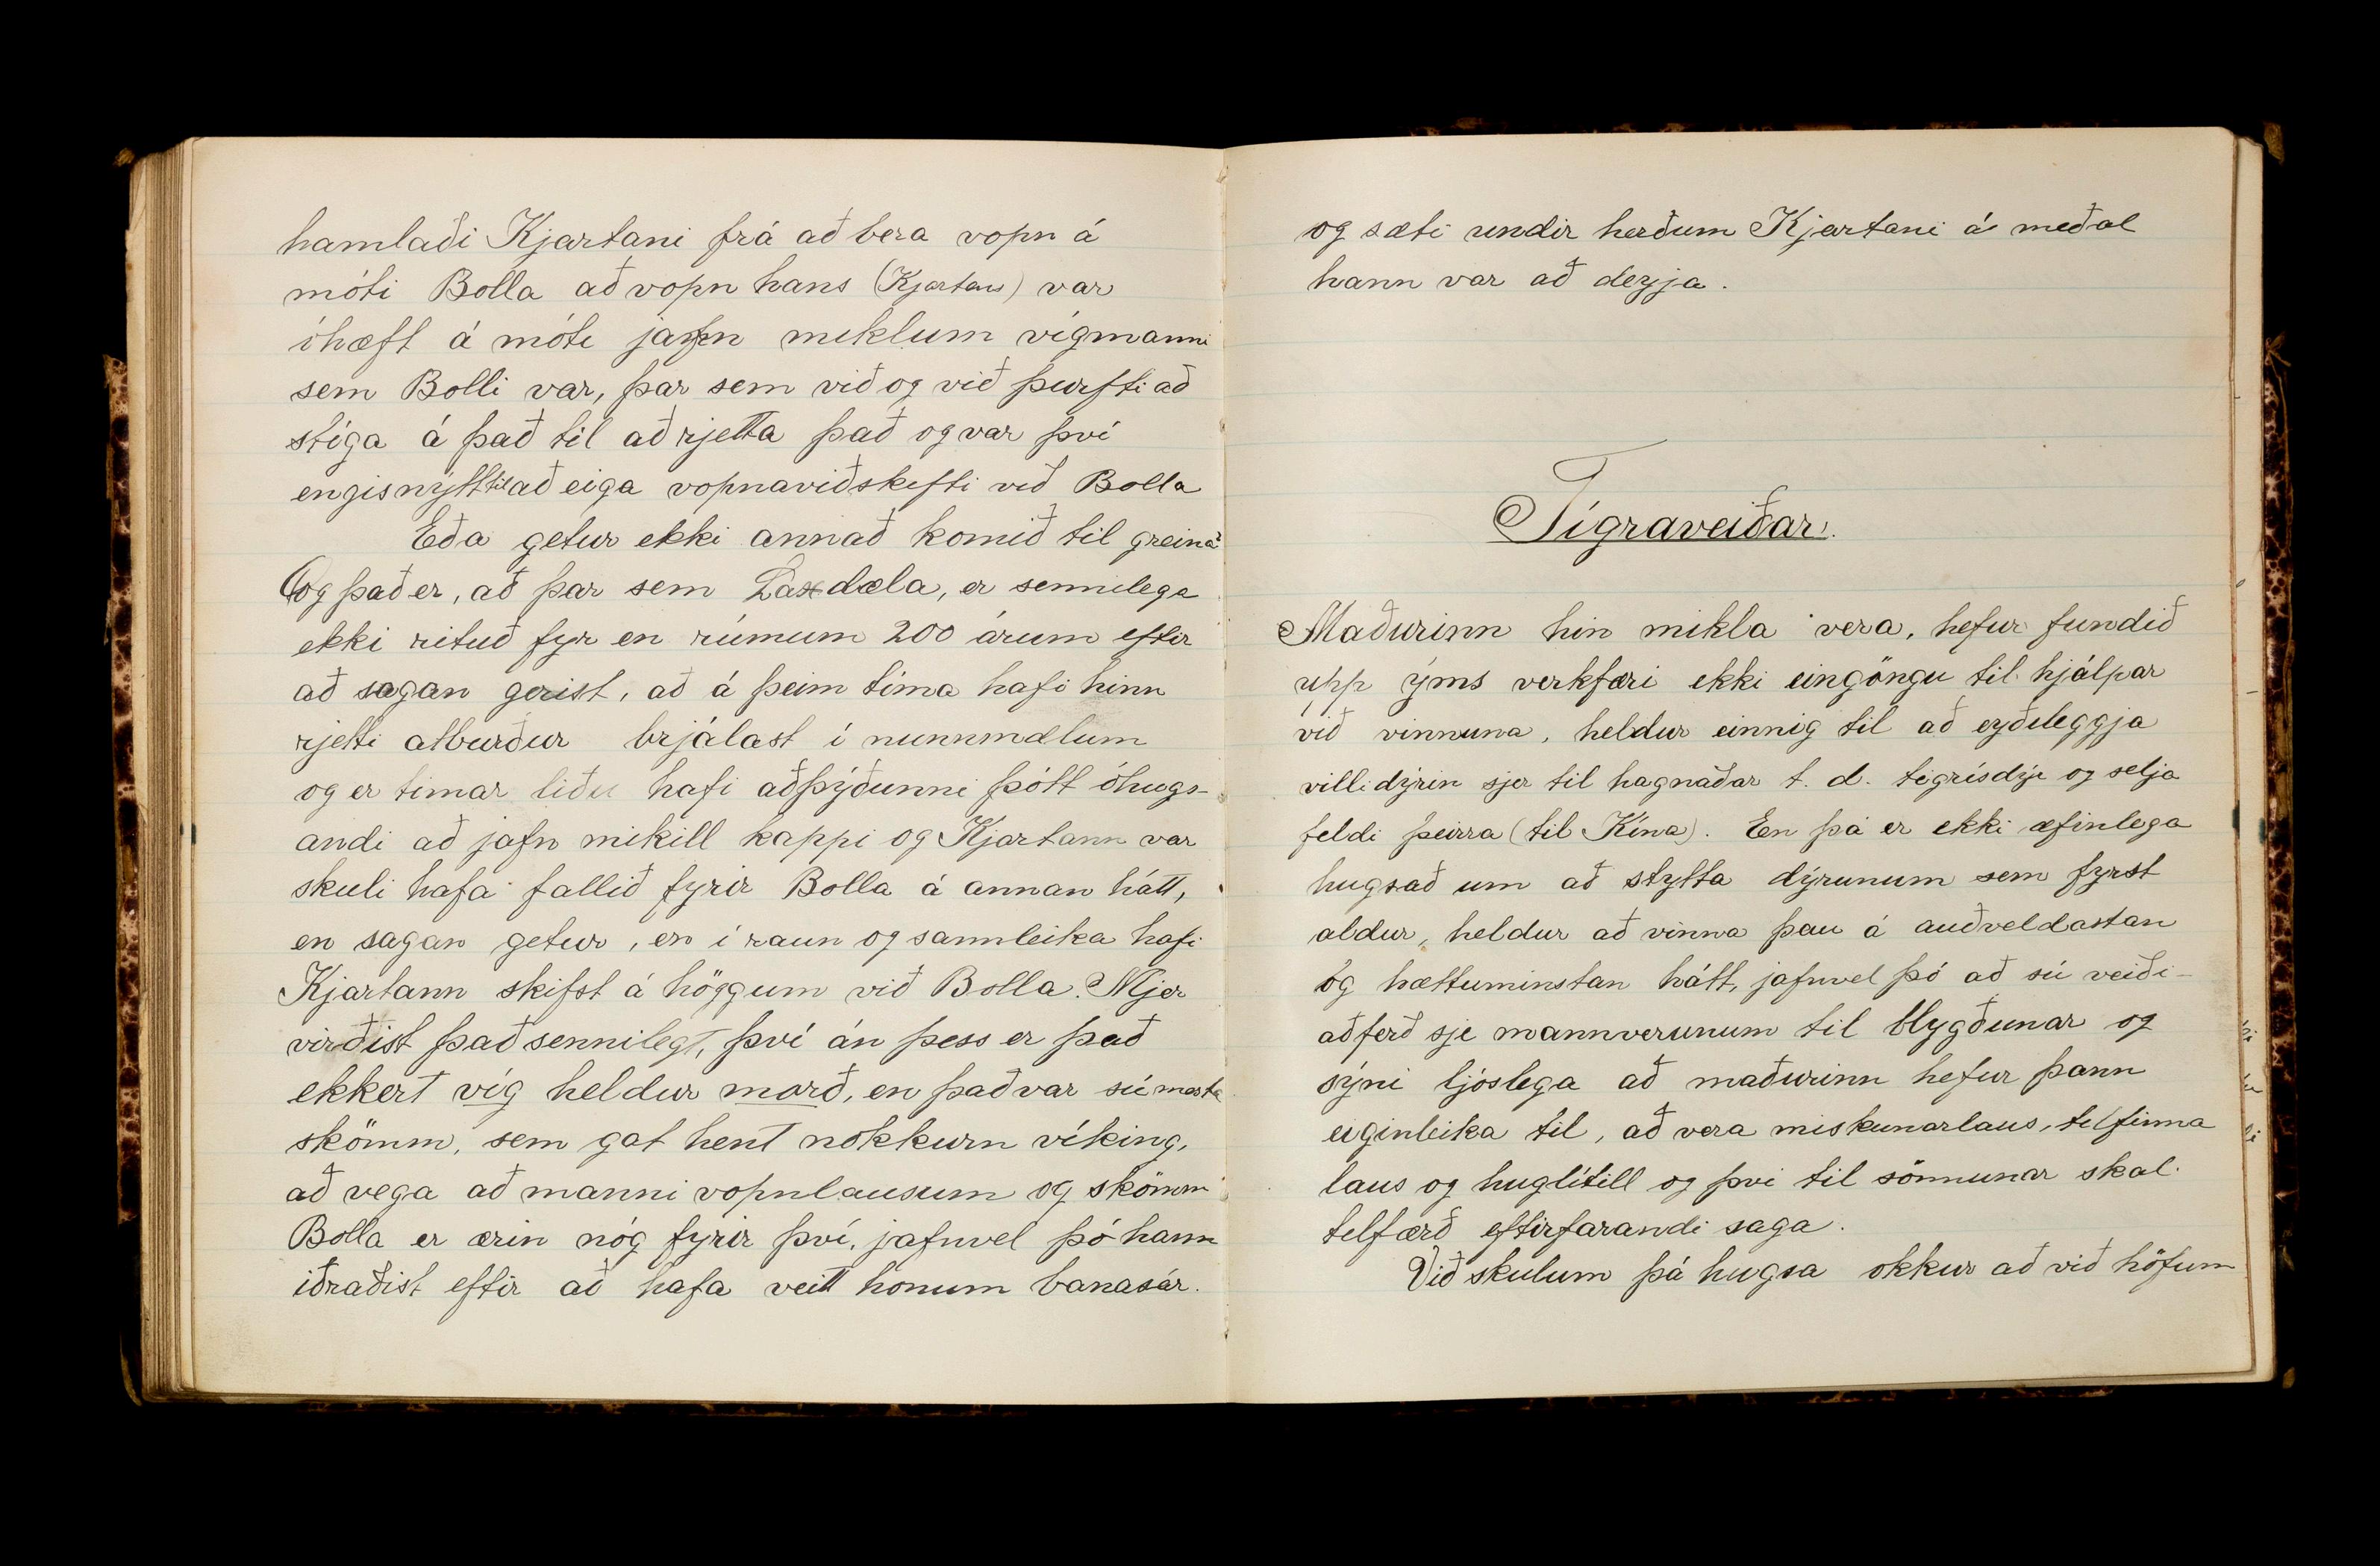 hamlaði Kjartani frá að bera vopn á
móti Bolla að vopn hans (Kjartans) var
óhæft á móti jafn miklum vígmanni
sem Bolli var, þar sem við og við þurfti að
stíga á það til að rjetta það og var því
engisnýtt til að eiga vopnaviðskifti við Bolla
Eða getur ekki annað komið til greina?
og það er, að þar sem Laxdæla, er sennilega
ekki rituð fyr en rúmum 200 árum eftir
að sagan gerist, að á þeim tíma hafi hinn
rjetti atburður brjálast í munnmælum
og er timar liðu hafi aðþýðunni þótt óhugs-
andi að jafn mikill kappi og Kjartann var
skuli hafa fallið fyrir Bolla á annan hátt,
en sagan getur, en í raun og sannleika hafi
Kjartann skifst á höggum við Bolla. Mjer
virðist það sennilegt, því án þess er það
ekkert víg heldur morð, en það var sú mesta
skömm, sem gat hent nokkurn víking,
að vega að manni vopnlausum og skömm
Bolla er ærin nóg fyrir því, jafnvel þó hann
iðraðist eftir að hafa veitt honum banasár.
og sæti undir herðum Kjartani á meðal
hann var að deyja.
Tígraveiðar.
Maðurinn hin mikla vera, hefur fundið
upp ýms verkfæri ekki eingöngu til hjálpar
við vinnuna, heldur einnig til að eyðileggja
villidýrin sjer til hagnaðar t. d. tígrisdýr og selja
feldi þeirra (til Kína). En þá er ekki æfinlega
hugsað um að stytta dýrunum sem fyrst
aldur, heldur að vinna þau á auðveldastan
og hættuminstan hátt, jafnvel þó að sú veiði-
aðferð sje mannverunum til blygðunar og
sýni ljóslega að maðurinn hefur þann
eiginleika til, að vera miskunarlaus, tilfinna
laus og huglítill og því til sönnunar skal
tilfærð eftirfarandi saga.
Við skulum þá hugsa okkur að við höfum